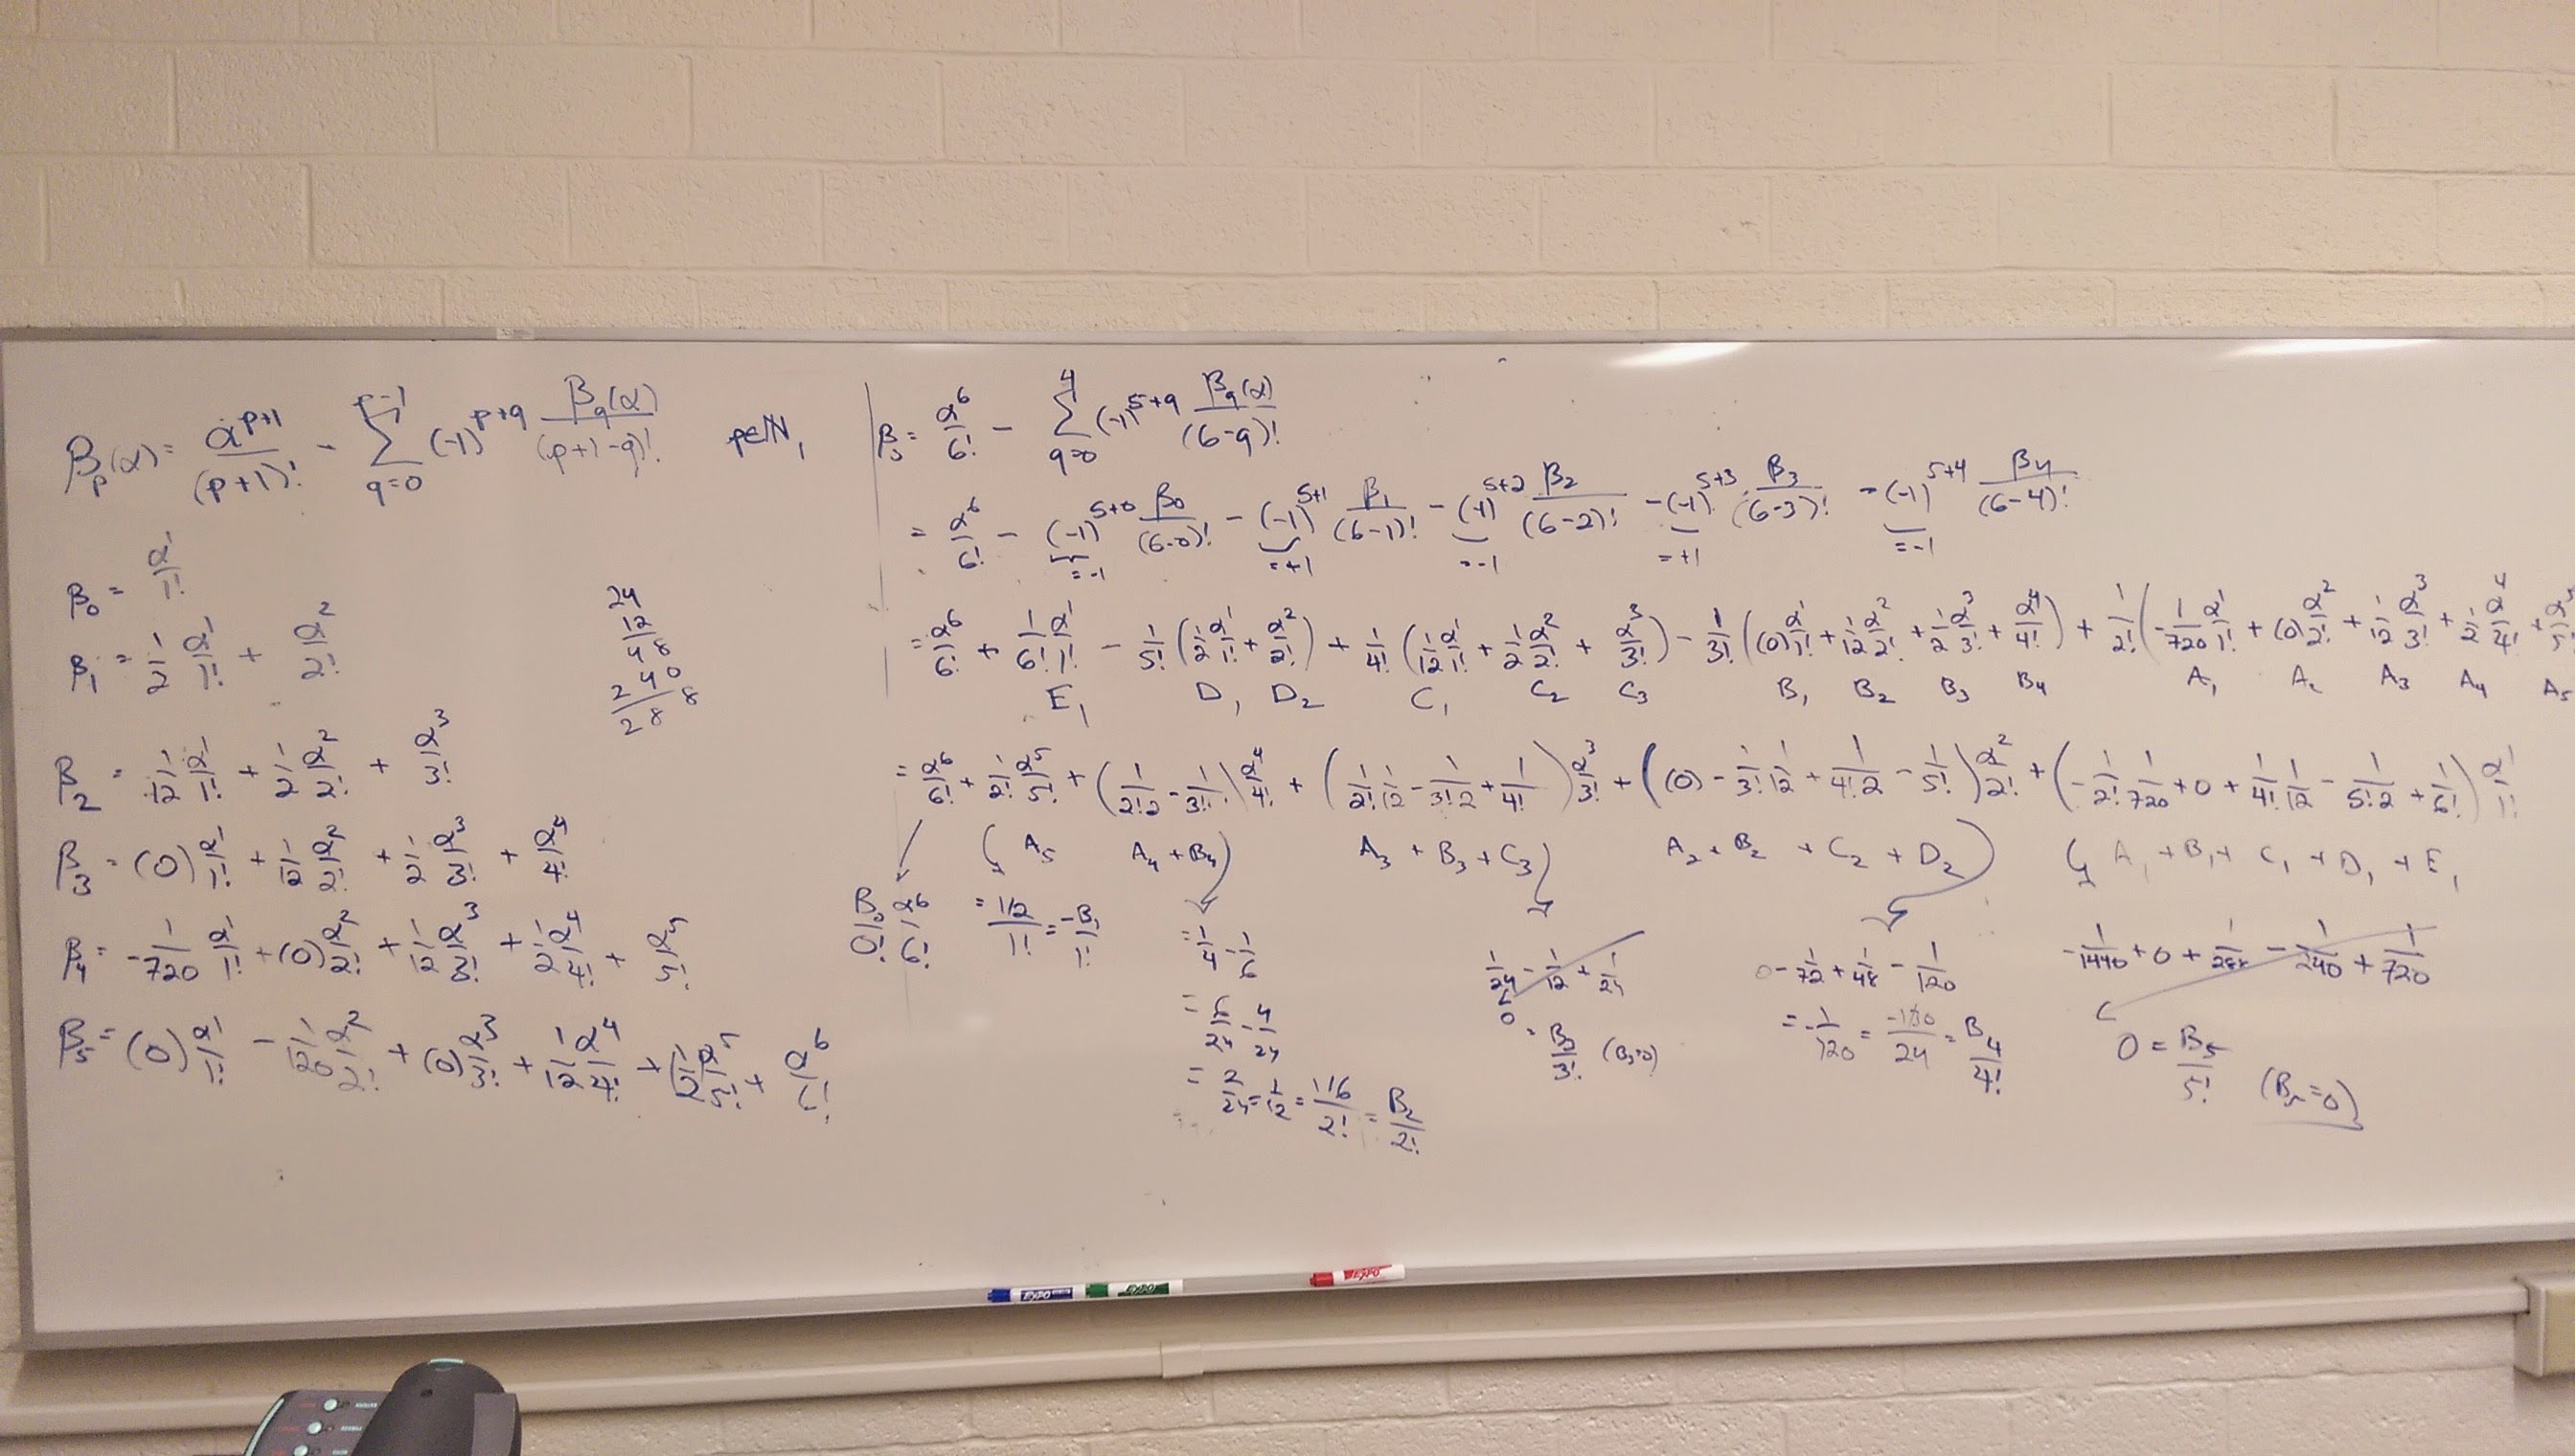 β_p(α) = α^{p+1}/(p+1)! - Σ_{q=0}^{p-1} (-1)^{p+q} β_q(α)/(p+1-q)!   p∈ℕ,
β_0 = α^1/1!
β_1 = 1/2 α^1/1! + α^2/2!
24
12
48
240
288
β_2 = 1/12 α^1/1! + 1/2 α^2/2! + α^3/3!
β_3 = (0) α^1/1! + 1/12 α^2/2! + 1/2 α^3/3! + α^4/4!
β_4 = -1/720 α^1/1! + (0) α^2/2! + 1/12 α^3/3! + 1/2 α^4/4! + α^5/5!
β_5 = (0) α^1/1! - 1/120 α^2/2! + (0) α^3/3! + 1/12 α^4/4! + 1/2 α^5/5! + α^6/6!
β_5 = α^6/6! - Σ_{q=0}^{4} (-1)^{5+q} β_q(α)/(6-q)!
= α^6/6! - (-1)^{5+0} β_0/(6-0)! - (-1)^{5+1} β_1/(6-1)! - (-1)^{5+2} β_2/(6-2)! - (-1)^{5+3} β_3/(6-3)! - (-1)^{5+4} β_4/(6-4)!
=-1 =+1 =-1 =+1 =-1
= α^6/6! + 1/6! α^1/1! - 1/5! (1/2 α^1/1! + α^2/2!) + 1/4! (1/12 α^1/1! + 1/2 α^2/2! + α^3/3!) - 1/3! ((0) α^1/1! + 1/12 α^2/2! + 1/2 α^3/3! + α^4/4!) + 1/2! (-1/720 α^1/1! + (0) α^2/2! + 1/12 α^3/3! + 1/2 α^4/4! + α^5/5!
E_1 D_1 D_2 C_1 C_2 C_3 B_1 B_2 B_3 B_4 A_1 A_2 A_3 A_4 A_5
= α^6/6! + 1/2! α^5/5! + (1/2! 1/2 - 1/3!) α^4/4! + (1/2! 1/12 - 1/3! 1/2 + 1/4!) α^3/3! + ((0) - 1/3! 1/12 + 1/4! 1/2 - 1/5!) α^2/2! + (-1/2! 1/720 + 0 + 1/4! 1/12 - 1/5! 1/2 + 1/6!) α^1/1!
A_5 A_4 + B_4 A_3 + B_3 + C_3 A_2 + B_2 + C_2 + D_2 A_1 + B_1 + C_1 + D_1 + E_1
B_0/0! α^6/6!
= 1/2/1! = -B_1/1!
= 1/4 - 1/6
= 6/24 - 4/24
= 2/24 = 1/12 = 1/6/2! = B_2/2!
1/24 - 1/12 + 1/24
0
= B_3/3! (B_3=0)
0 - 1/72 + 1/48 - 1/120
= -1/120 = /24 = B_4/4!
-1/1440 + 0 + 1/288 - 1/240 + 1/720
0 = B_5/5! (B_5=0)
EXPO
EXPO
EXPO